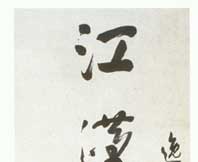 江漢
逸